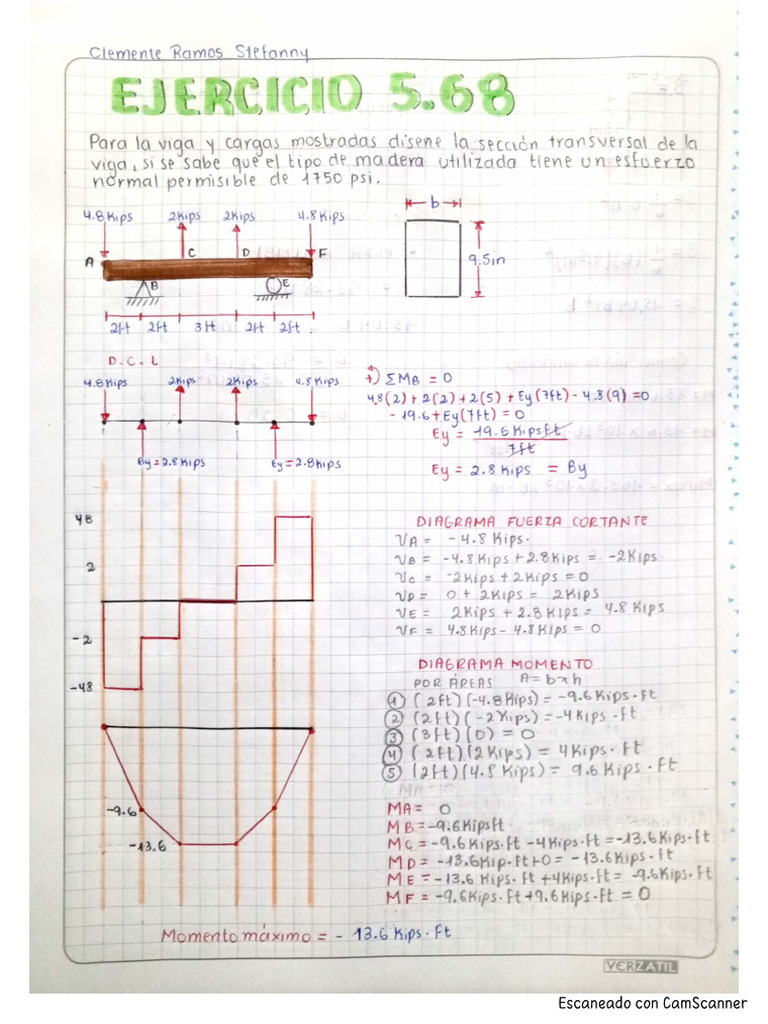 Clemente Ramos Stefanny
EJERCICIO 5.68
Para la viga y cargas mostradas disene la sección transversal de la
viga, si se sabe que el tipo de madera utilizada tiene un esfuerzo
normal permisible de 1750 psi.
4.8 Kips 2Kips 2Kips 4.8 Kips
A C D F
B E
2ft 2ft 3ft 2ft 2ft
b
9.5in
D.C.L
4.8 Kips 2Kips 2Kips 4.8 Kips
By=2.8 Kips Ey=2.8 Kips
+) ΣMB = 0
4.8(2) + 2(2) + 2(5) + Ey(7ft) - 4.8(9) = 0
- 19.6 + Ey(7ft) = 0
Ey = 19.6 Kips ft
7ft
Ey = 2.8 Kips = By
48
2
-2
-48
DIAGRAMA FUERZA CORTANTE
VA = -4.8 Kips.
VB = -4.8Kips + 2.8Kips = -2Kips
VC = -2Kips + 2Kips = 0
VD = 0 + 2Kips = 2Kips
VE = 2Kips + 2.8 Kips = 4.8 Kips
VF = 4.8Kips - 4.8 Kips = 0
DIAGRAMA MOMENTO
POR ÁREAS A = b x h
1 (2ft)(-4.8Kips) = -9.6Kips·ft
2 (2ft)(-2Kips) = -4Kips·ft
3 (3ft)(0) = 0
4 (2ft)(2Kips) = 4Kips·ft
5 (2ft)(4.8 Kips) = 9.6 Kips·ft
-9.6
-13.6
MA = 0
MB = -9.6Kipsft
MC = -9.6Kips·ft - 4Kips·ft = -13.6Kips·ft
MD = -13.6Kip·ft + 0 = -13.6Kips·ft
ME = -13.6 Kips·ft + 4Kips·ft = -9.6Kips·ft
MF = -9.6Kips·ft + 9.6Kips·ft = 0
Momento máximo = - 13.6 Kips·ft
VERZATIL
Escaneado con CamScanner